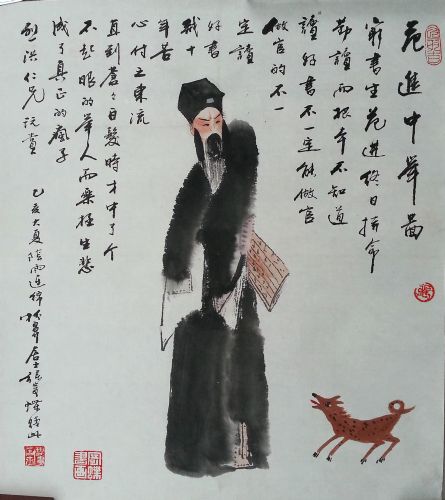 范進中举图
穷書生范进终日拼命
苦讀而根本不知道
讀好書不一定能做官
做官的不一
定讀
好書
几十
年苦
心付之東流
直到蒼蒼白髮時才中了个
不起眼的举人而樂極生悲
成了真正的瘋子
洪仁兄玩賞
乙亥大夏陰雨连绵